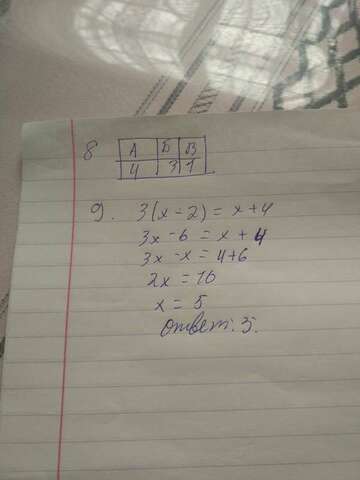 8 А Б В
4 3 1
9. 3(x - 2) = x + 4
3x - 6 = x + 4
3x - x = 4 + 6
2x = 10
x = 5
Ответ: 5.